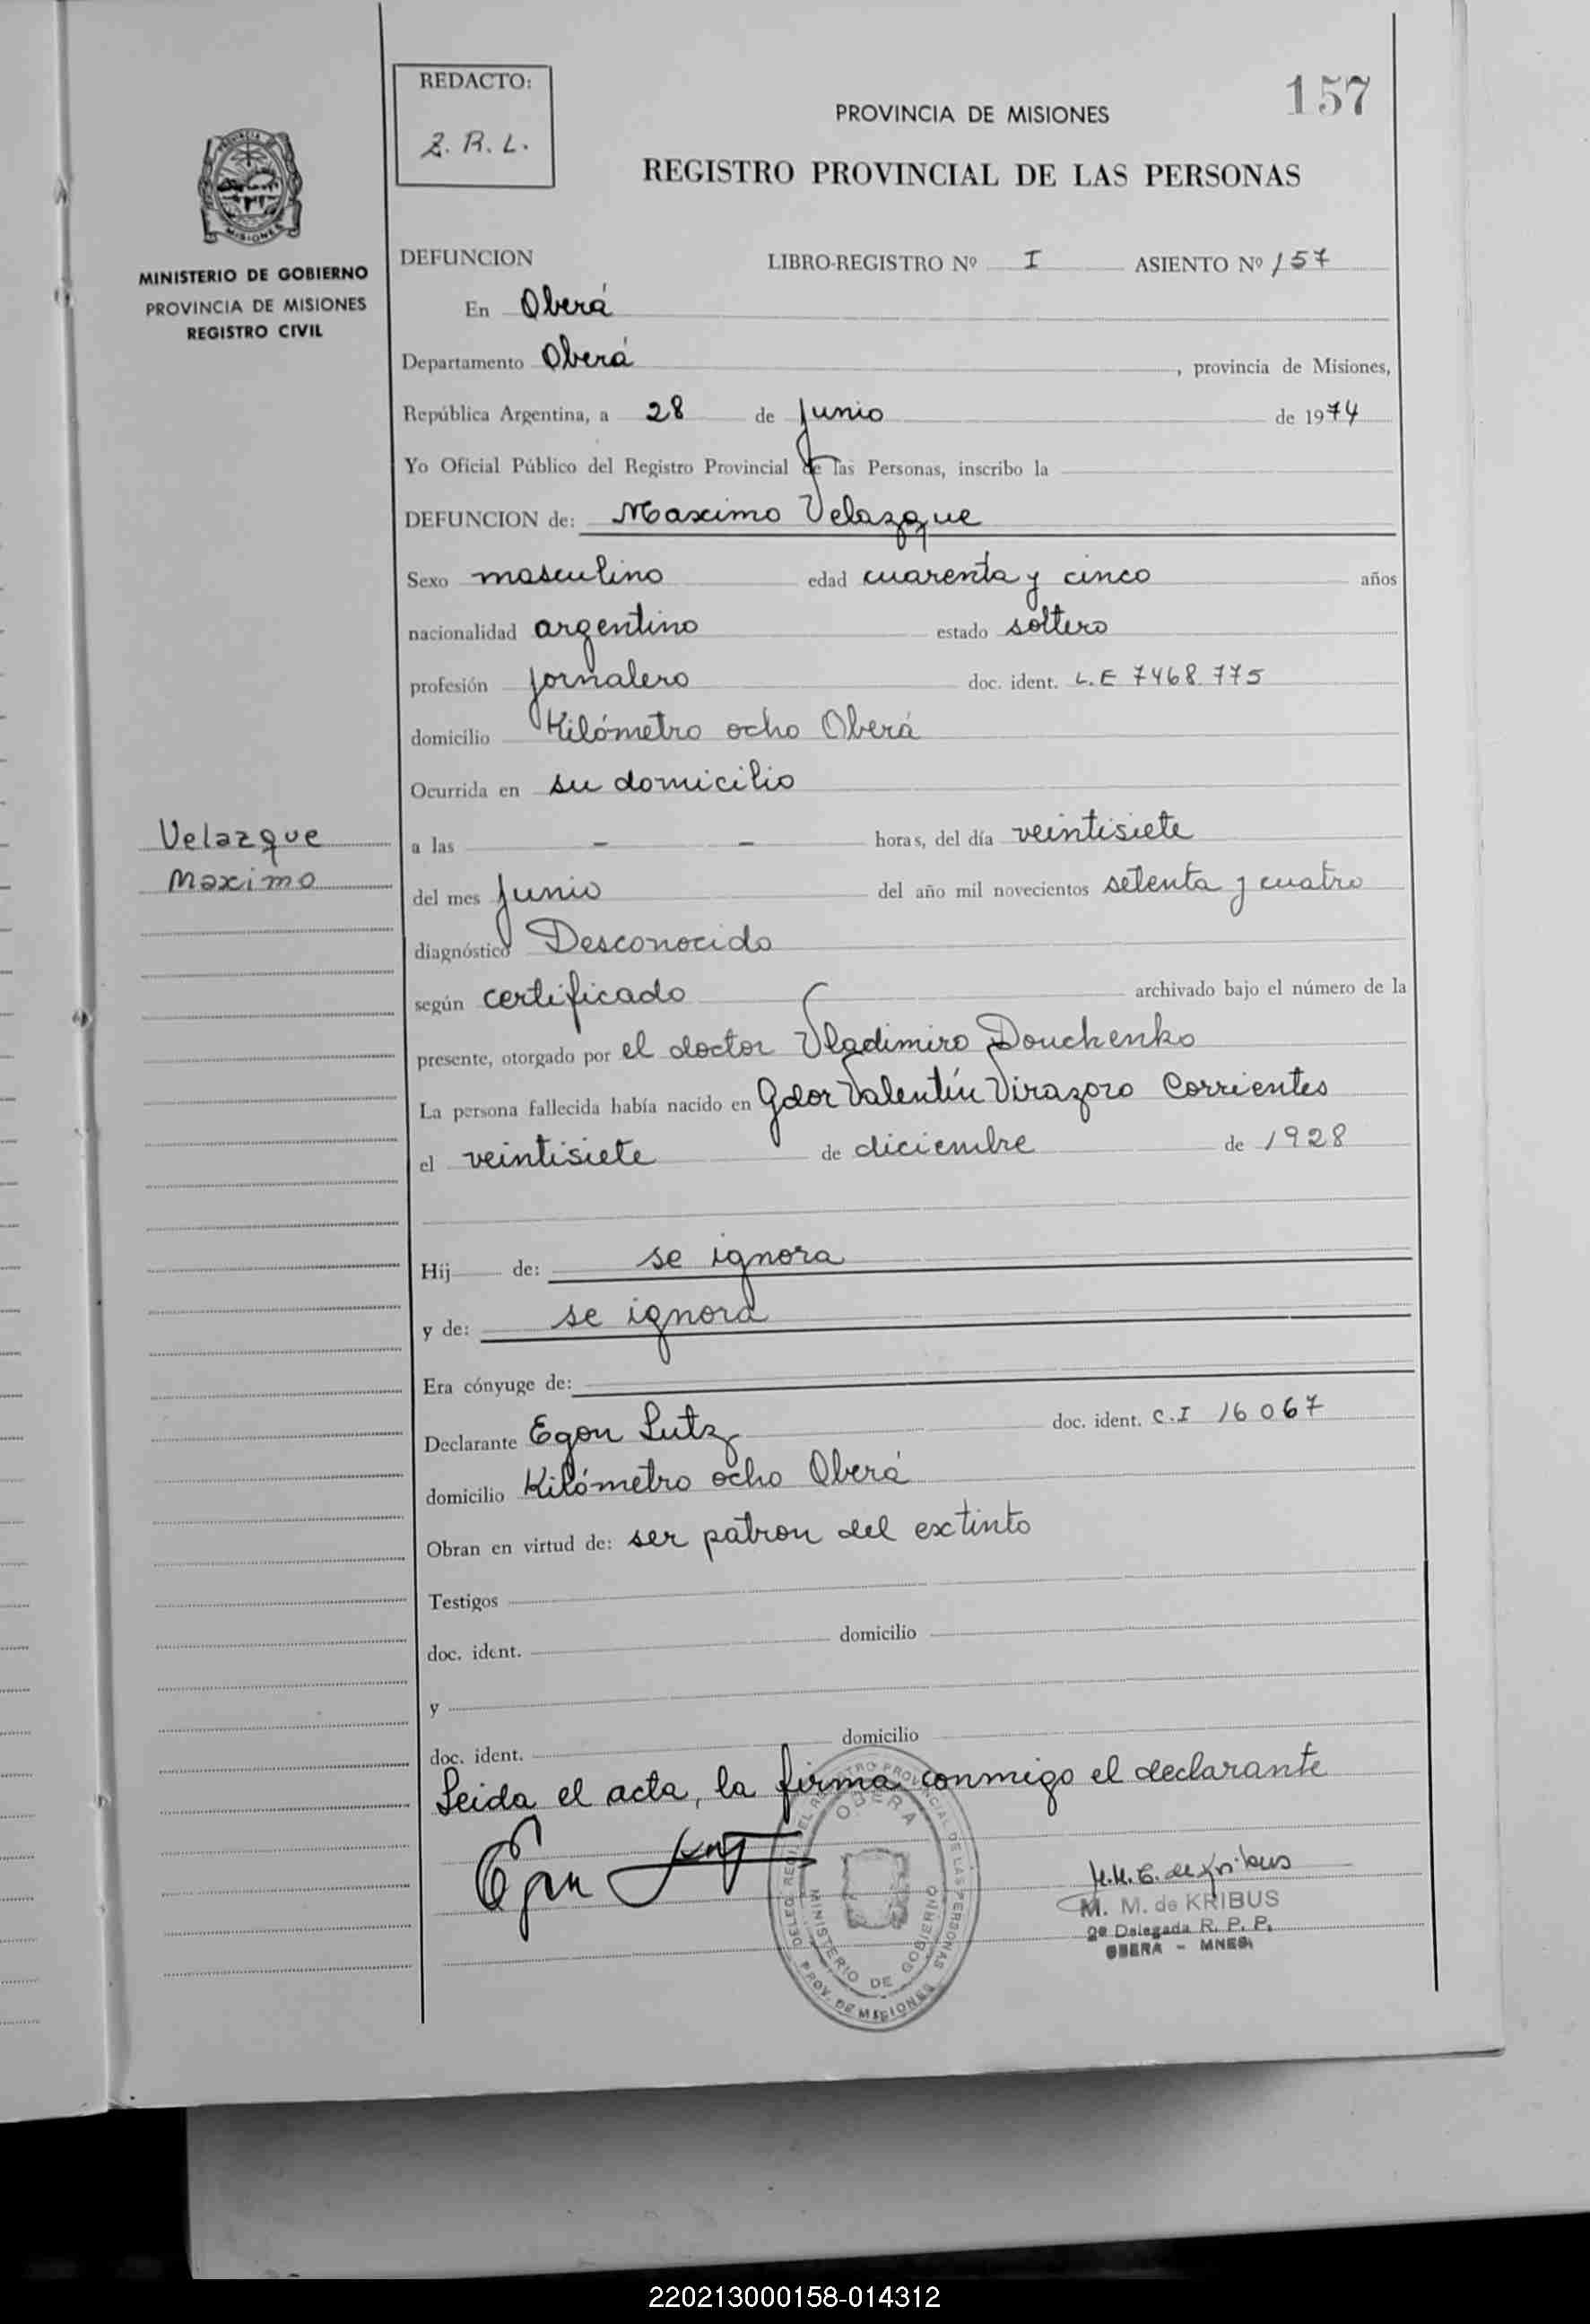 REDACTO:
Z. R. L.
157
PROVINCIA DE MISIONES
REGISTRO PROVINCIAL DE LAS PERSONAS
MISIONES
MINISTERIO DE GOBIERNO
PROVINCIA DE MISIONES
REGISTRO CIVIL
DEFUNCION LIBRO-REGISTRO Nº I ASIENTO Nº 157
En Oberá
Departamento Oberá , provincia de Misiones,
República Argentina, a 28 de Junio de 1974
Yo Oficial Público del Registro Provincial de las Personas, inscribo la
DEFUNCION de: Maximo Velazque
Sexo masculino edad cuarenta y cinco años
nacionalidad argentino estado soltero
profesión jornalero doc. ident. L.E 7468.775
domicilio Kilómetro ocho Oberá
Ocurrida en su domicilio
Velazque
Maximo
a las - - horas, del día veintisiete
del mes Junio del año mil novecientos setenta y cuatro
diagnóstico Desconocido
según certificado archivado bajo el número de la
presente, otorgado por el doctor Vladimiro Douchenko
La persona fallecida había nacido en Gdor Valentín Virazoro Corrientes
el veintisiete de diciembre de 1928
Hij de: se ignora
y de: se ignora
Era cónyuge de:
Declarante Egon Lutz doc. ident. C.I 16067
domicilio Kilómetro ocho Oberá
Obran en virtud de: ser patron del extinto
Testigos
doc. ident. domicilio
y
doc. ident. domicilio
Leida el acta, la firma conmigo el declarante
OBERA
MINISTERIO DE GOBIERNO
PROV. DE MISIONES
M. M. de KRIBUS
2ª Delegada R. P. P.
OBERA - MNES.
220213000158-014312